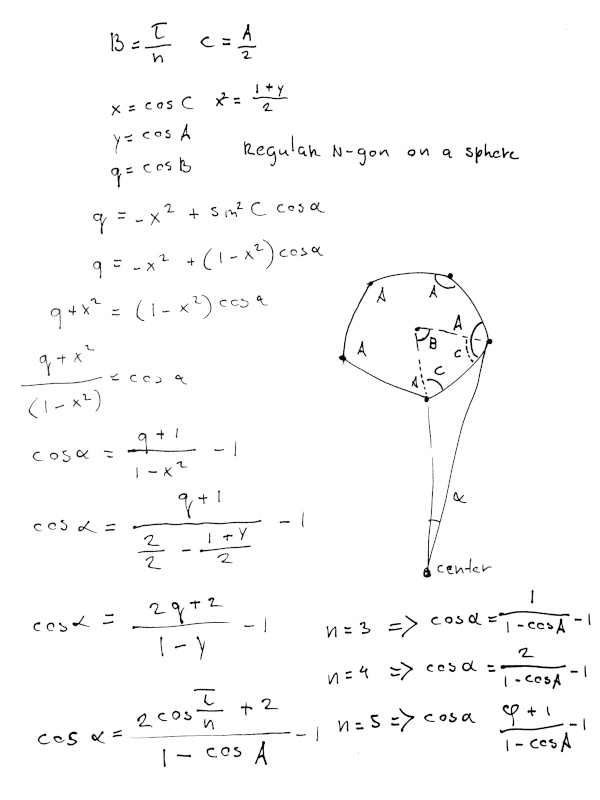 B = τ/n   C = A/2
x = cos C   x² = (1+y)/2
y = cos A
q = cos B
Regular N-gon on a sphere
q = -x² + sin² C cos α
q = -x² + (1-x²) cos α
q+x² = (1-x²) cos α
(q+x²)/(1-x²) = cos α
cos α = (q+1)/(1-x²) - 1
cos α = (q+1)/(2/2 - (1+y)/2) - 1
cos α = (2q+2)/(1-y) - 1
cos α = (2 cos τ/n + 2)/(1 - cos A) - 1
A
A
A
A
A
B
C
C
α
center
n=3 => cos α = 1/(1-cos A) - 1
n=4 => cos α = 2/(1-cos A) - 1
n=5 => cos α (φ+1)/(1-cos A) - 1